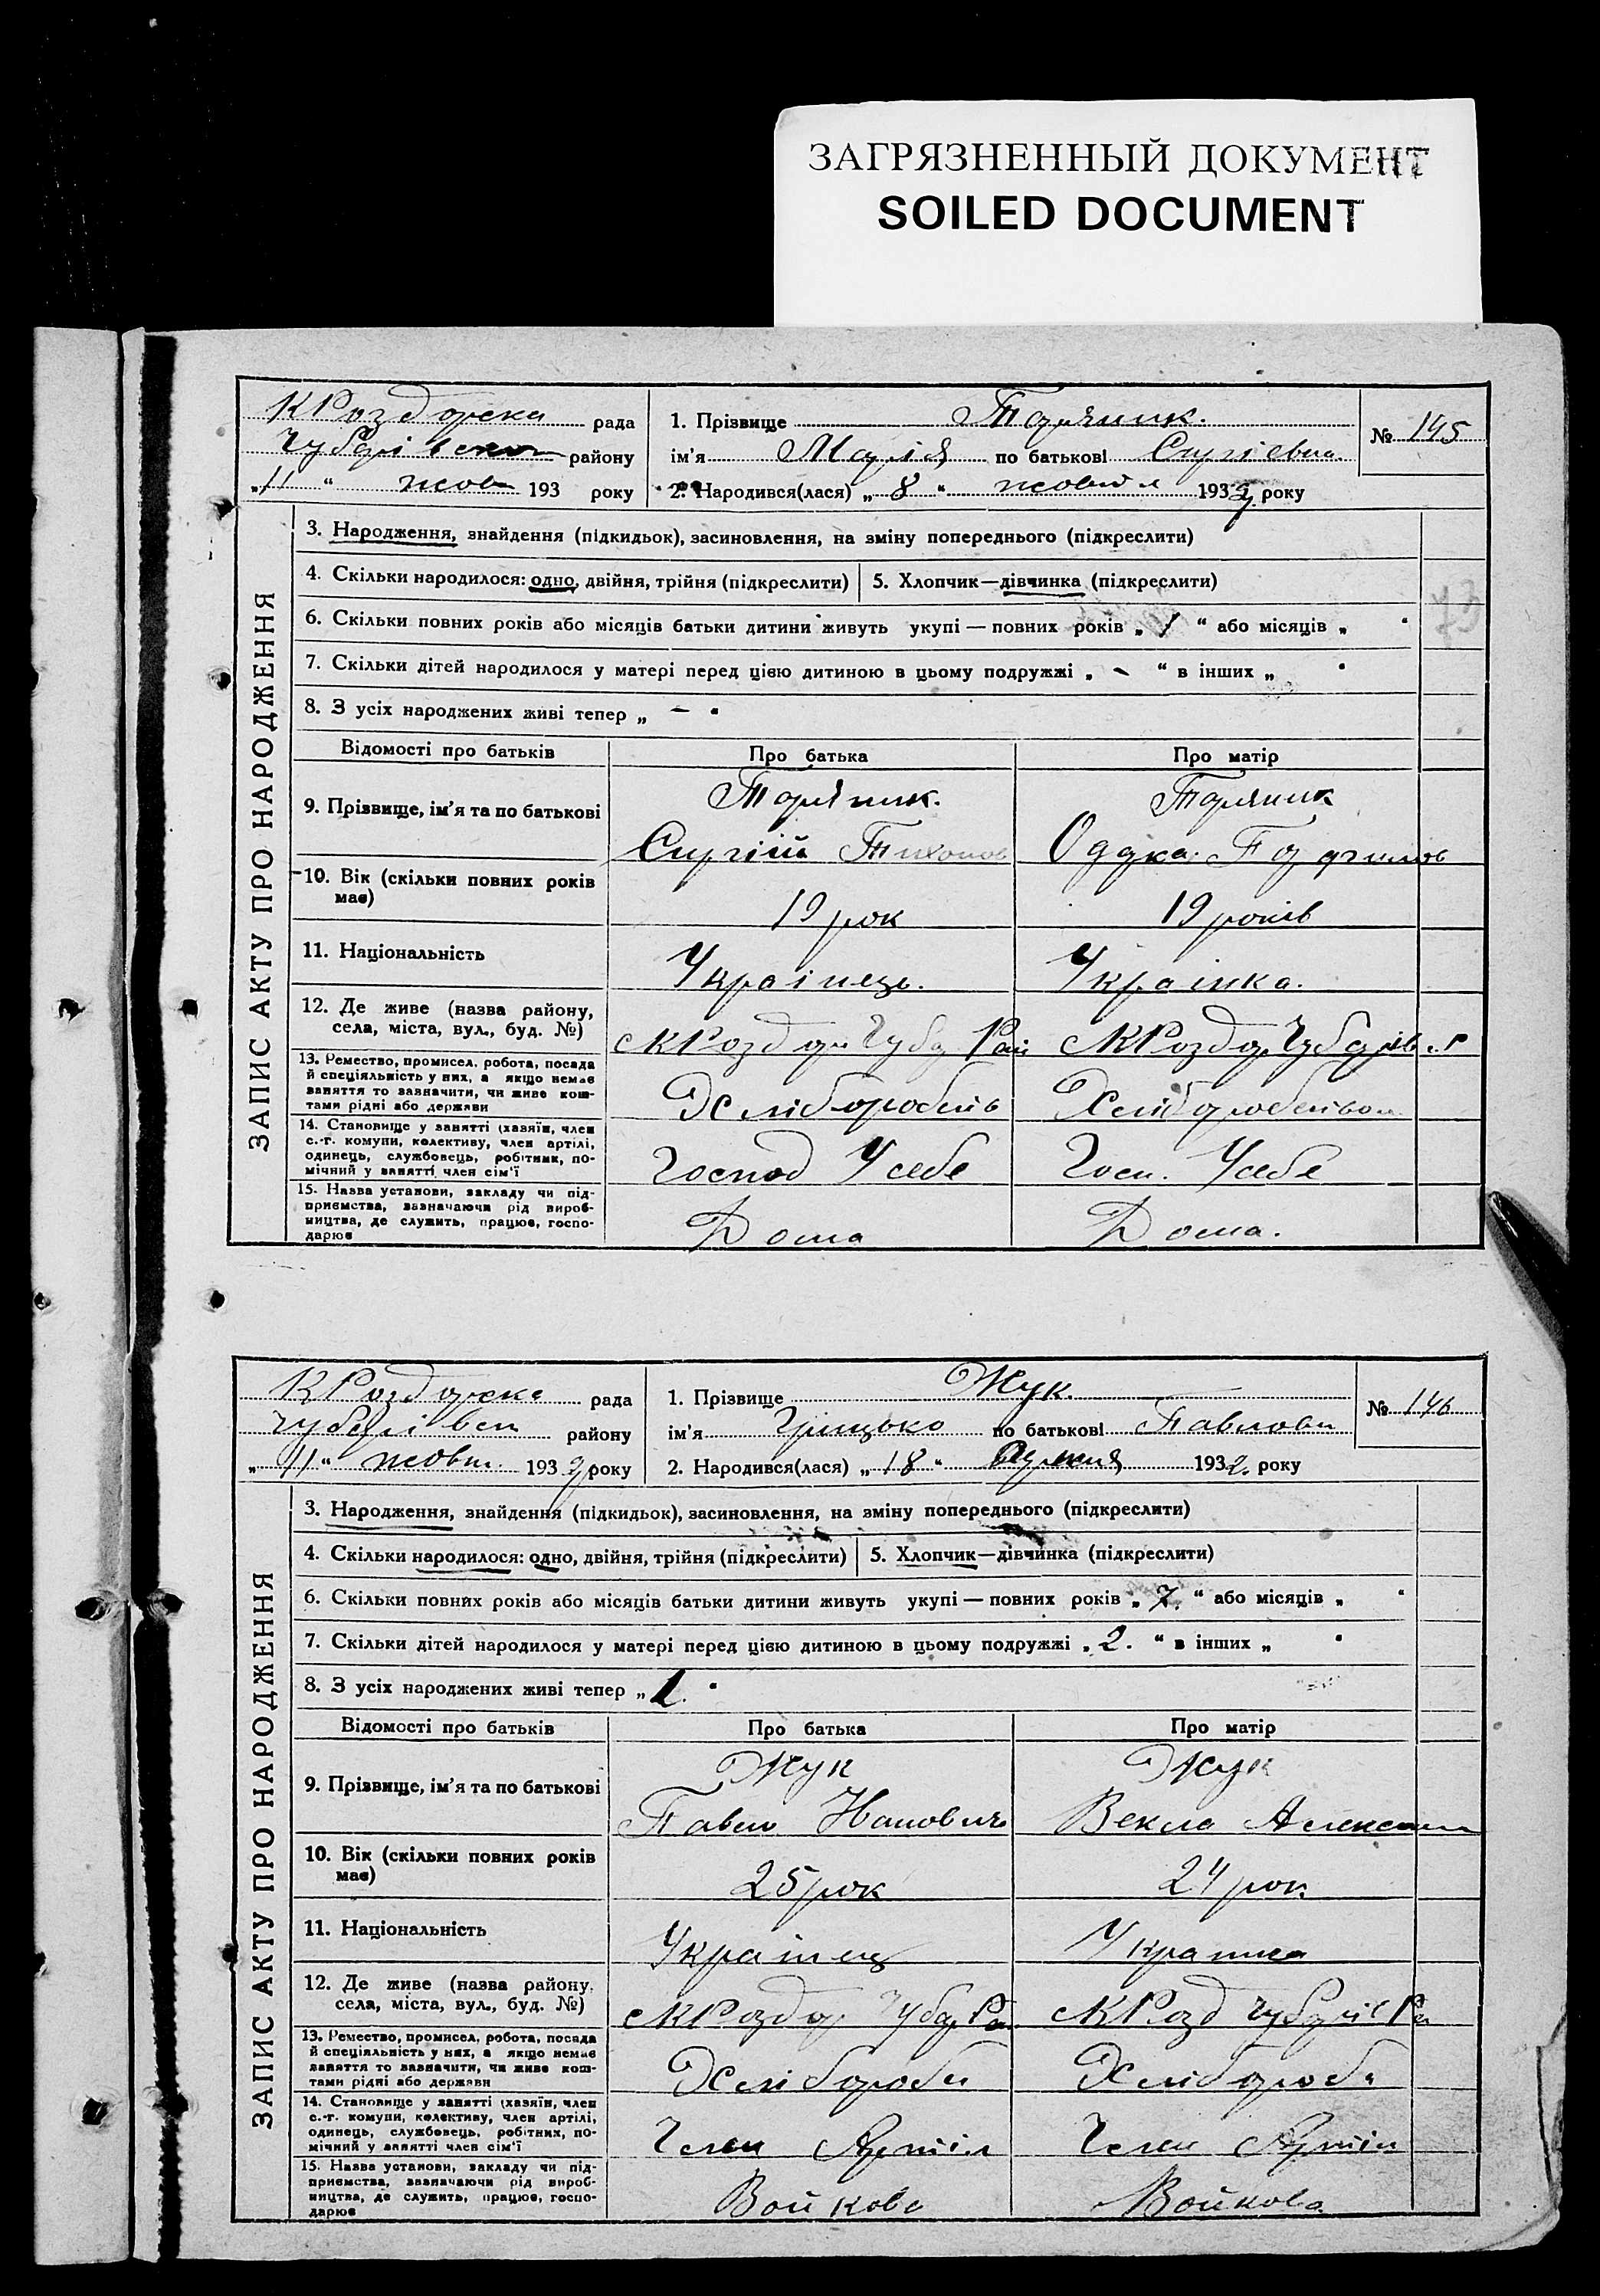 ЗАГРЯЗНЕННЫЙ ДОКУМЕНТ
SOILED DOCUMENT
ЗАПИС АКТУ ПРО НАРОДЖЕННЯ
КРоздорска рада
Чубарівськ району
„11“ жов 193 року
1. Прізвище
№ 145
ім'я Марія по батькові Сиргіевна
2. Народився(лася) „8“ жовтня 1932 року
3. Народження, знайдення (підкидьок), засиновлення, на зміну попереднього (підкреслити)
4. Скільки народилося: одно, двійня, трійня (підкреслити) 5. Хлопчик—дівчинка (підкреслити)
6. Скільки повних років або місяців батьки дитини живуть укупі — повних років „1“ або місяців „ “
7. Скільки дітей народилося у матері перед цією дитиною в цьому подружжі „ - “ в інших „ “
8. З усіх народжених живі тепер „ - “
73
Відомості про батьків Про батька Про матір
9. Прізвище, ім'я та по батькові
Сиргій Тихонов
10. Вік (скільки повних років має)
19 рок 19 років
11. Національність
Украінець. Украінка.
12. Де живе (назва району, села, міста, вул., буд. №)
с КРоздор Чубар Рай с КРоздор Чубарів Р
13. Ремество, промисел, робота, посада й спеціяльність у них, а якщо немає заняття то зазначити, чи живе коштами рідні або держави
Хлібороб
14. Становище у занятті (хазяїн, член с.-г. комуни, колективу, член артілі, одинець, службовець, робітник, помічний у занятті член сім'ї
Господ Усебе Госп. Усебе
15. Назва установи, закладу чи підприємства, зазначаючи рід виробництва, де служить, працює, господарює
Дома Дома.
ЗАПИС АКТУ ПРО НАРОДЖЕННЯ
КРоздорска рада
Чубарівск району
„11“ жовт. 1932 року
1. Прізвище Жук
№ 146
ім'я Грицько по батькові Павлови
2. Народився(лася) „18“ 1932. року
3. Народження, знайдення (підкидьок), засиновлення, на зміну попереднього (підкреслити)
4. Скільки народилося: одно, двійня, трійня (підкреслити) 5. Хлопчик—дівчинка (підкреслити)
6. Скільки повних років або місяців батьки дитини живуть укупі — повних років „7.“ або місяців „ “
7. Скільки дітей народилося у матері перед цією дитиною в цьому подружжі „2.“ в інших „ “
8. З усіх народжених живі тепер „1.“
Відомості про батьків Про батька Про матір
9. Прізвище, ім'я та по батькові
Жук Жук
Павло Иванович Векла Алексеи
10. Вік (скільки повних років має)
25 рок 24 рок
11. Національність
Украінец Украинка
12. Де живе (назва району, села, міста, вул., буд. №)
с КРоздор Чубар Ра с КРозд Чубарів Ра
13. Ремество, промисел, робота, посада й спеціяльність у них, а якщо немає заняття то зазначити, чи живе коштами рідні або держави
Хлібороб Хлібороб
14. Становище у занятті (хазяїн, член с.-г. комуни, колективу, член артілі, одинець, службовець, робітник, помічний у занятті член сім'ї
Член Артіл Член Артіл
15. Назва установи, закладу чи підприємства, зазначаючи рід виробництва, де служить, працює, господарює
Войкова Войкова